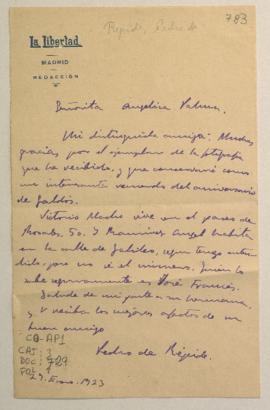 Répide, Pedro de
783
La Libertad
MADRID
REDACCIÓN
Señorita Angélica Palma.
Mi distinguida amiga: Muchas
gracias, por el ejemplar de la fotografía
que he recibido, y que conservaré como
un interesante recuerdo del aniversario
de Galdós.
Victorio Macho vive en el paseo de
Rosales, 50. Y Ramírez Angel habita
en la calle de Galileo, según tengo enten-
dido, pero no sé el número. Quien lo
sabe seguramente es José Francés.
Salude de mi parte a su hermana,
y reciba los mejores afectos de su
buen amigo
Pedro de Répide.
CO-AP1
CAJ: 3
DOC: 729
FOL: 1
29. Enero. 1923